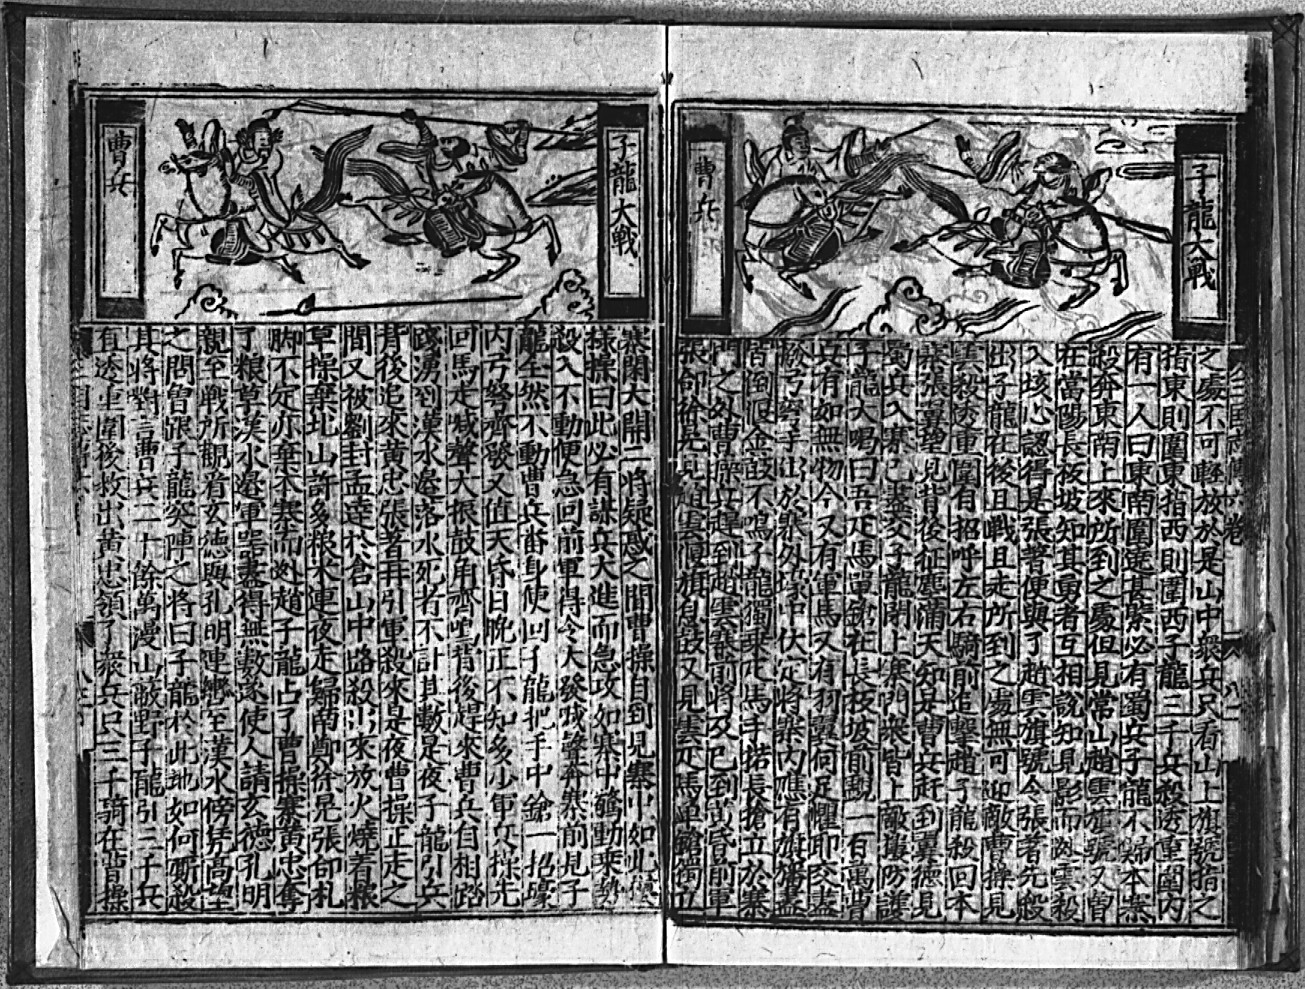 子龍大戰
曹兵
之處不可輕放於是山中衆兵只看山上旗號指之
指東則圍東指西則圍西子龍三千兵殺透重圍内
有一人曰東南圍遶甚緊必有蜀兵子龍不歸本寨
殺奔東南上來所到之處但見常山趙雲旗號又曾
在當陽長坂坡知其勇者互相說知見影而迯雲殺
入垓心認得是張著便與了趙雲旗號令張著先殺
出子龍在後且戰且走所到之處無可迎敵曹操見
雲殺透重圍有招呼左右驍前追擊趙子龍殺回本
寨張翼望見背後征塵蒲天知是曹兵赶到翼德見
蜀兵入寨已盡交子龍閉上寨門衆皆上敵樓防護
子龍大喝曰吾疋馬單鎗在長坂坡前覷一百萬曹
兵有如無物今又有軍馬又有羽翼何足懼耶交盖
撥弓弩手出於寨外壕中伏定將寨内應有旗旛盡
皆倒偃金鼓不鳴子龍獨乘疋馬手搭長鎗立於寨
門之外曹操兵趕到趙雲寨前將及已到黃昏前軍
張郃徐晃見趙雲偃旗息鼓又見雲疋馬單鎗獨立
子龍大戰
曹兵
寨門大開二將疑惑之間曹操自到見寨中如此模
樣操曰此必有謀兵大進而急攻如寨中鶻動乘勢
殺入不動便急回前軍得令大發喊聲奔寨前見子
龍全然不動曹兵畨身便回子龍把手中鎗一招壕
内弓弩齊發又值天昏日晚正不知多少軍兵操先
回馬走喊聲大振鼓角齊鳴背後趕來曹兵自相踏
踐湧到漢水邊落水死者不計其數是夜子龍引兵
背後追來黃忠張著再引軍殺來是夜曹操正走之
間又被劉封孟達於倉山中路殺出來放火燒着粮
草操棄北山許多粮米連夜走歸南鄭徐晃張郃札
脚不定亦棄本寨而迯趙子龍占了曹操寨黃忠奪
了粮草漢水邊軍噐盡得無數遂使人請玄德孔明
親至戰所觀看玄德與孔明連轡至漢水傍凭高望
之問曾跟子龍突陣之將曰子龍於此地如何厮殺
其將對言曹兵二十餘萬漫山蔽野子龍引三千兵
有透重圍後救出黃忠領了衆兵只三千騎在背操